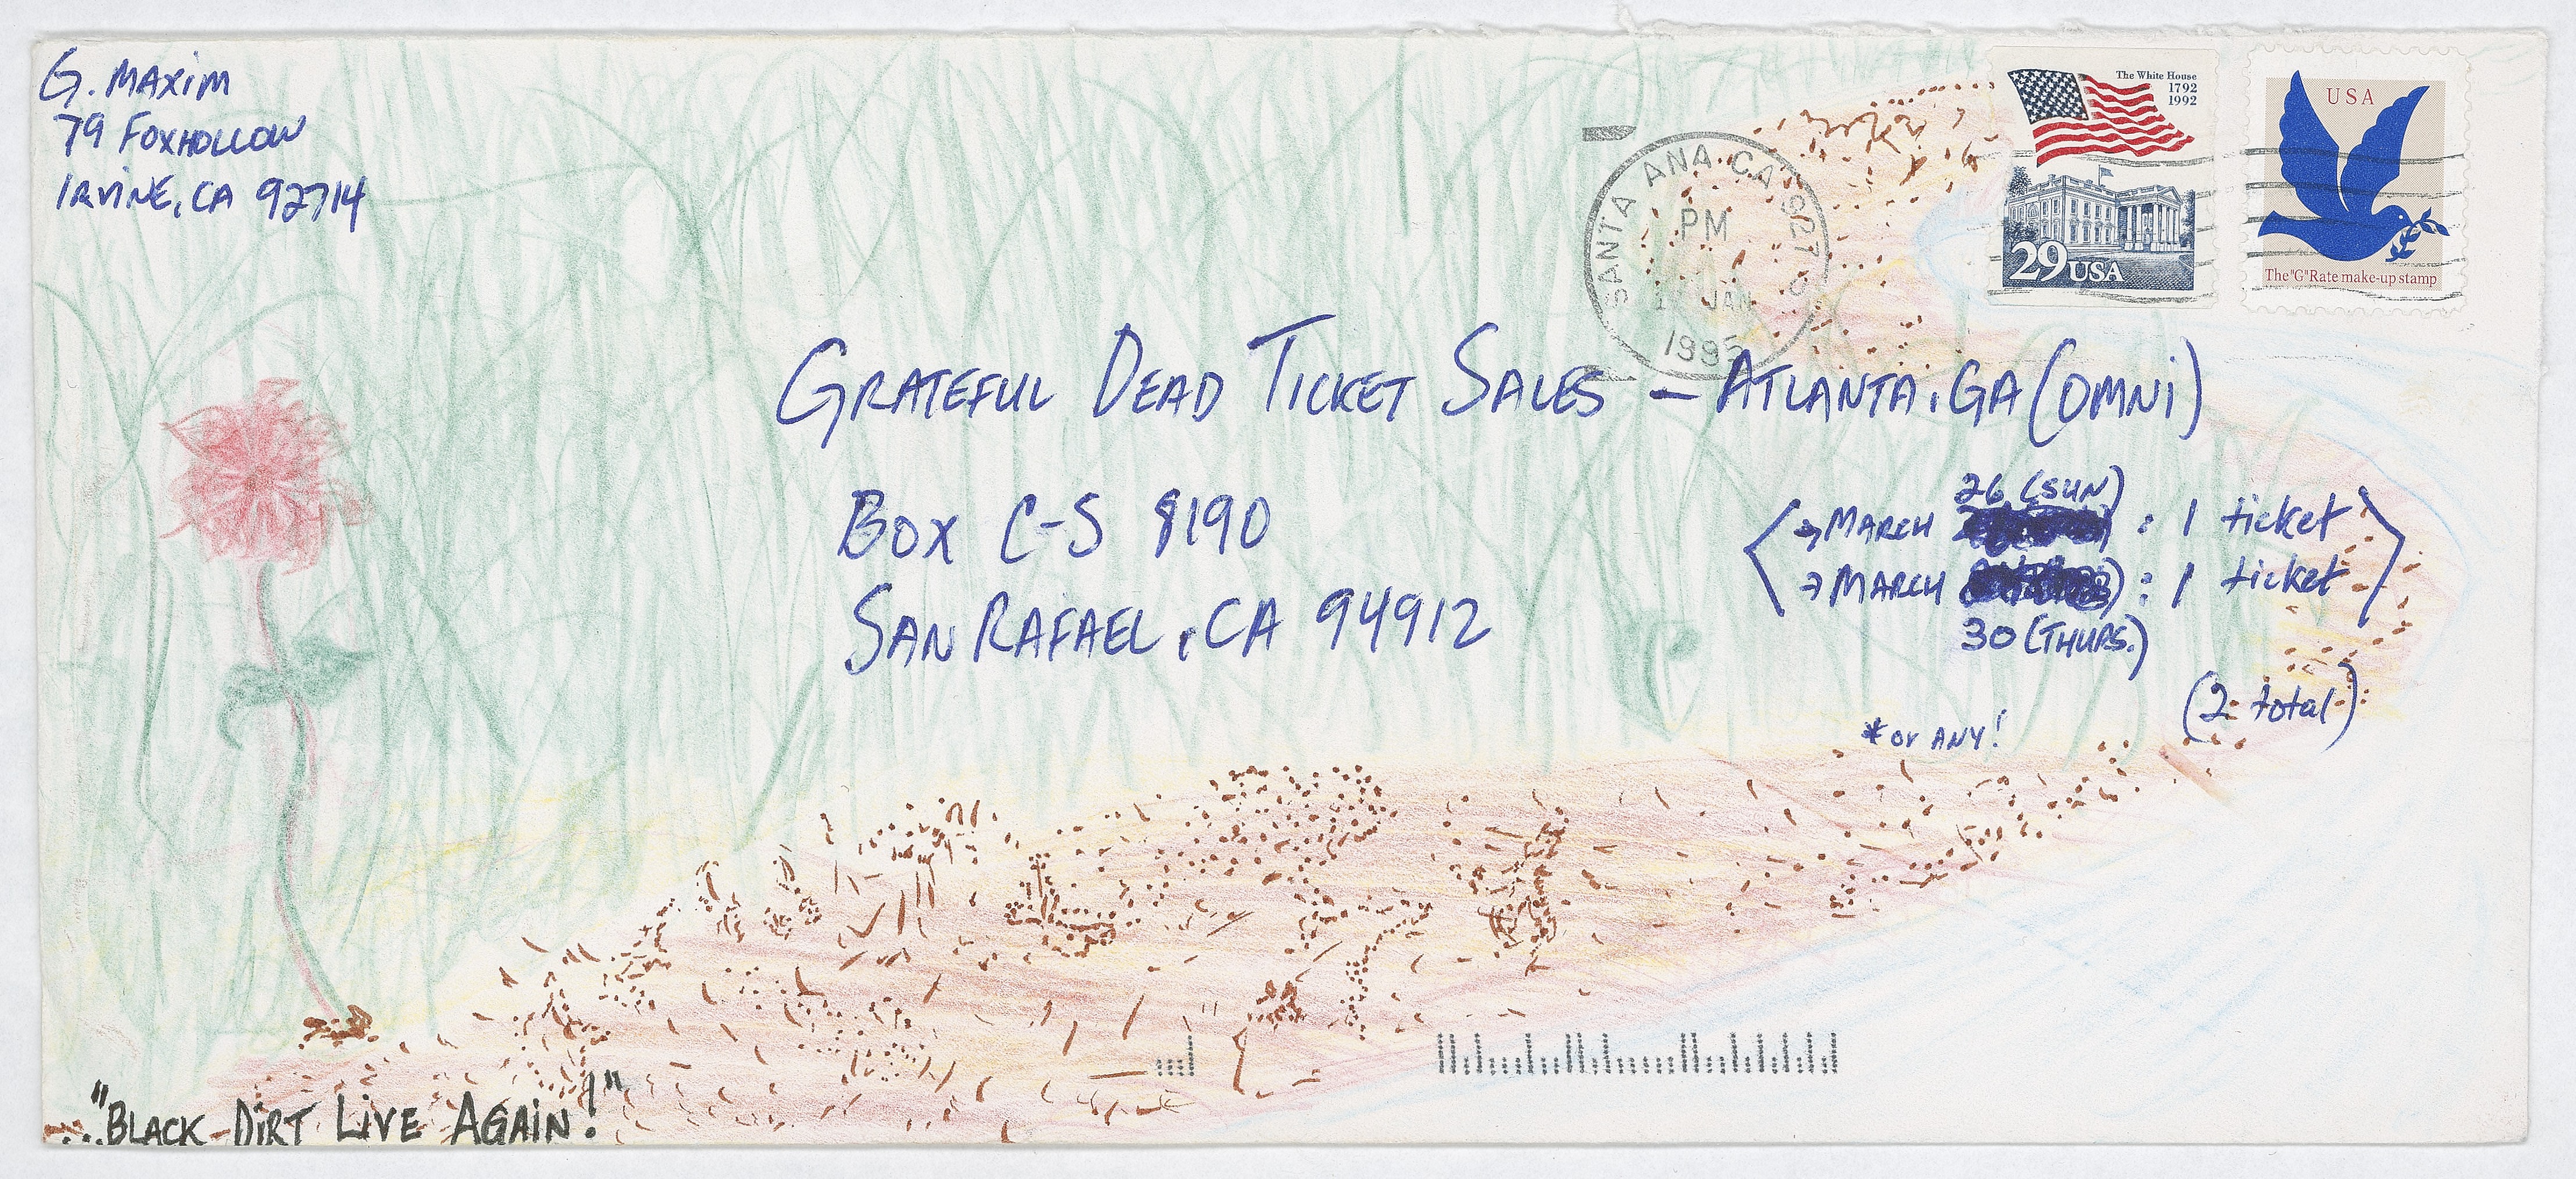 G. MAXIM
79 FOXHOLLOW
IRVINE, CA 92714
The White House
1792
1992
29 USA
USA
The "G" Rate make-up stamp
SANTA ANA CA 927
PM
JAN
1995
GRATEFUL DEAD TICKET SALES – ATLANTA, GA (OMNI)
BOX C-S 8190
SAN RAFAEL, CA 94912
26 (SUN)
→ MARCH : 1 ticket
→ MARCH : 1 ticket
30 (THURS.)
(2 total)
* or ANY!
..."BLACK DIRT LIVE AGAIN!"